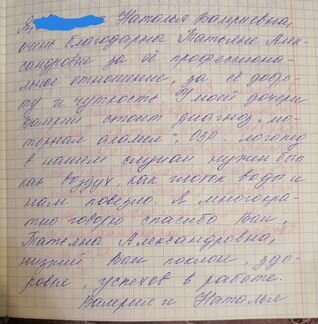 Я, Наталья Валериевна,
очень благодарна Татьяне Алек-
сандровне за её профессиона-
льное отношение, за её добро-
ту и чуткость. У моей дочери
Валерии стоит диагноз „мо-
торная алалия“, ОЗР. Логопед
в нашем случаи нужен был
как воздух, как глоток воды и
нам повезло. Я многокра-
тно говорю спасибо Вам,
Татьяна Александровна,
низкий Вам поклон, здо-
ровья, успехов в работе.
Валерия и Наталья